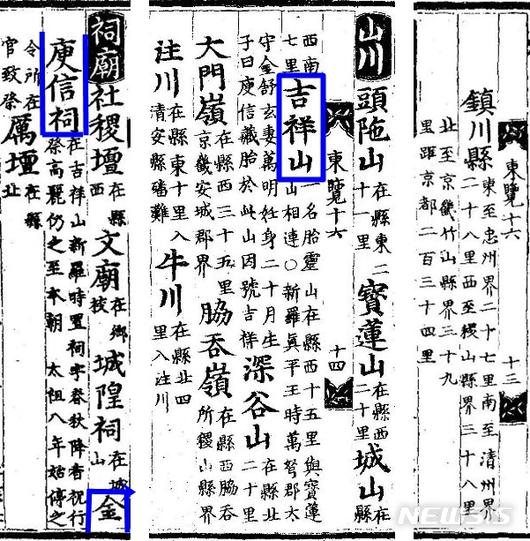 鎭川縣 東至忠州界二十七里南至清州界
二十八里西至稷山縣界三十八里
北至京畿竹山縣界三十九
里距京都二百三十四里
東覽六
十三
山川 頭陁山 在縣東二十一里 寶蓮山 在縣西二十里 城山 在縣
西南七里 吉祥山 一名胎靈山在縣西十五里與寶蓮
山相連○新羅眞平王時萬弩郡太
東覽十六
十四
守金舒玄妻萬明妊身二十月生
子曰庾信藏胎於此山因號吉祥 深谷山 在縣北二十里
大門嶺 在縣西三十五里京畿安城郡界 脇呑嶺 在縣西脇呑所稷山縣界
注川 在縣東十里入清安縣磻灘 牛川 在縣北四里入注川
祠廟 社稷壇 在縣西 文廟 在鄕校 城隍祠 在城山 金
庾信祠 在吉祥山新羅時置祠宇春秋降香祝行
祭高麗仍之至本朝 太祖八年始停之
令所在官致祭 厲壇 在縣北
NEWSIS